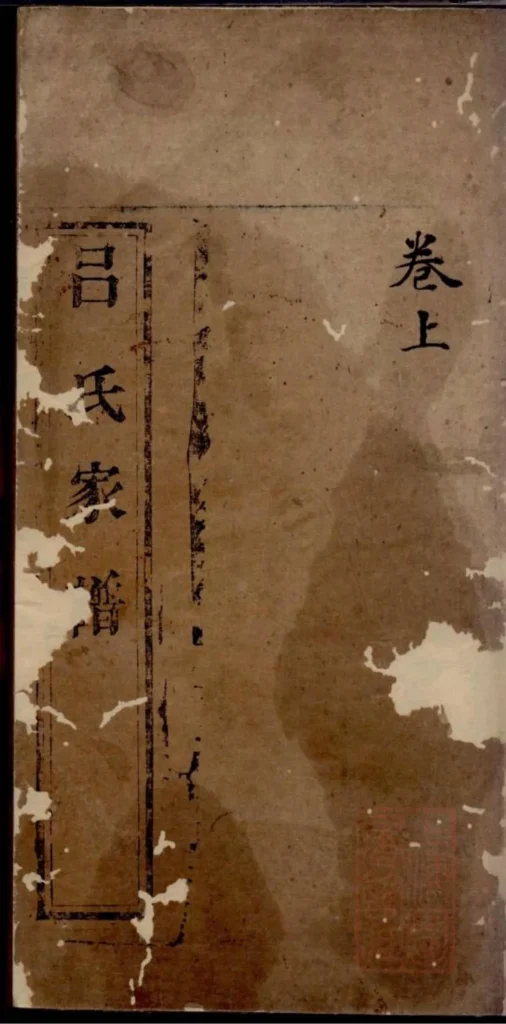 卷上
吕氏家譜